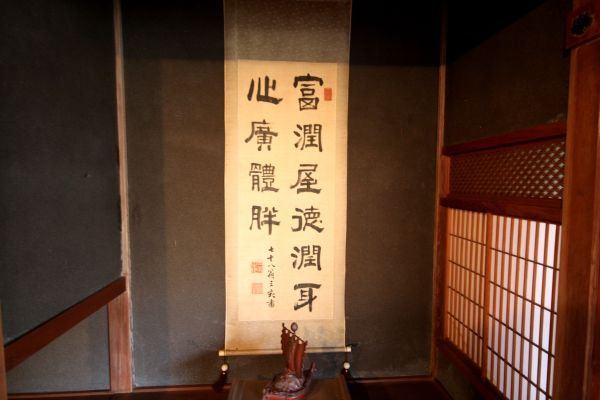 富潤屋徳潤身
心廣體胖
七十八翁三